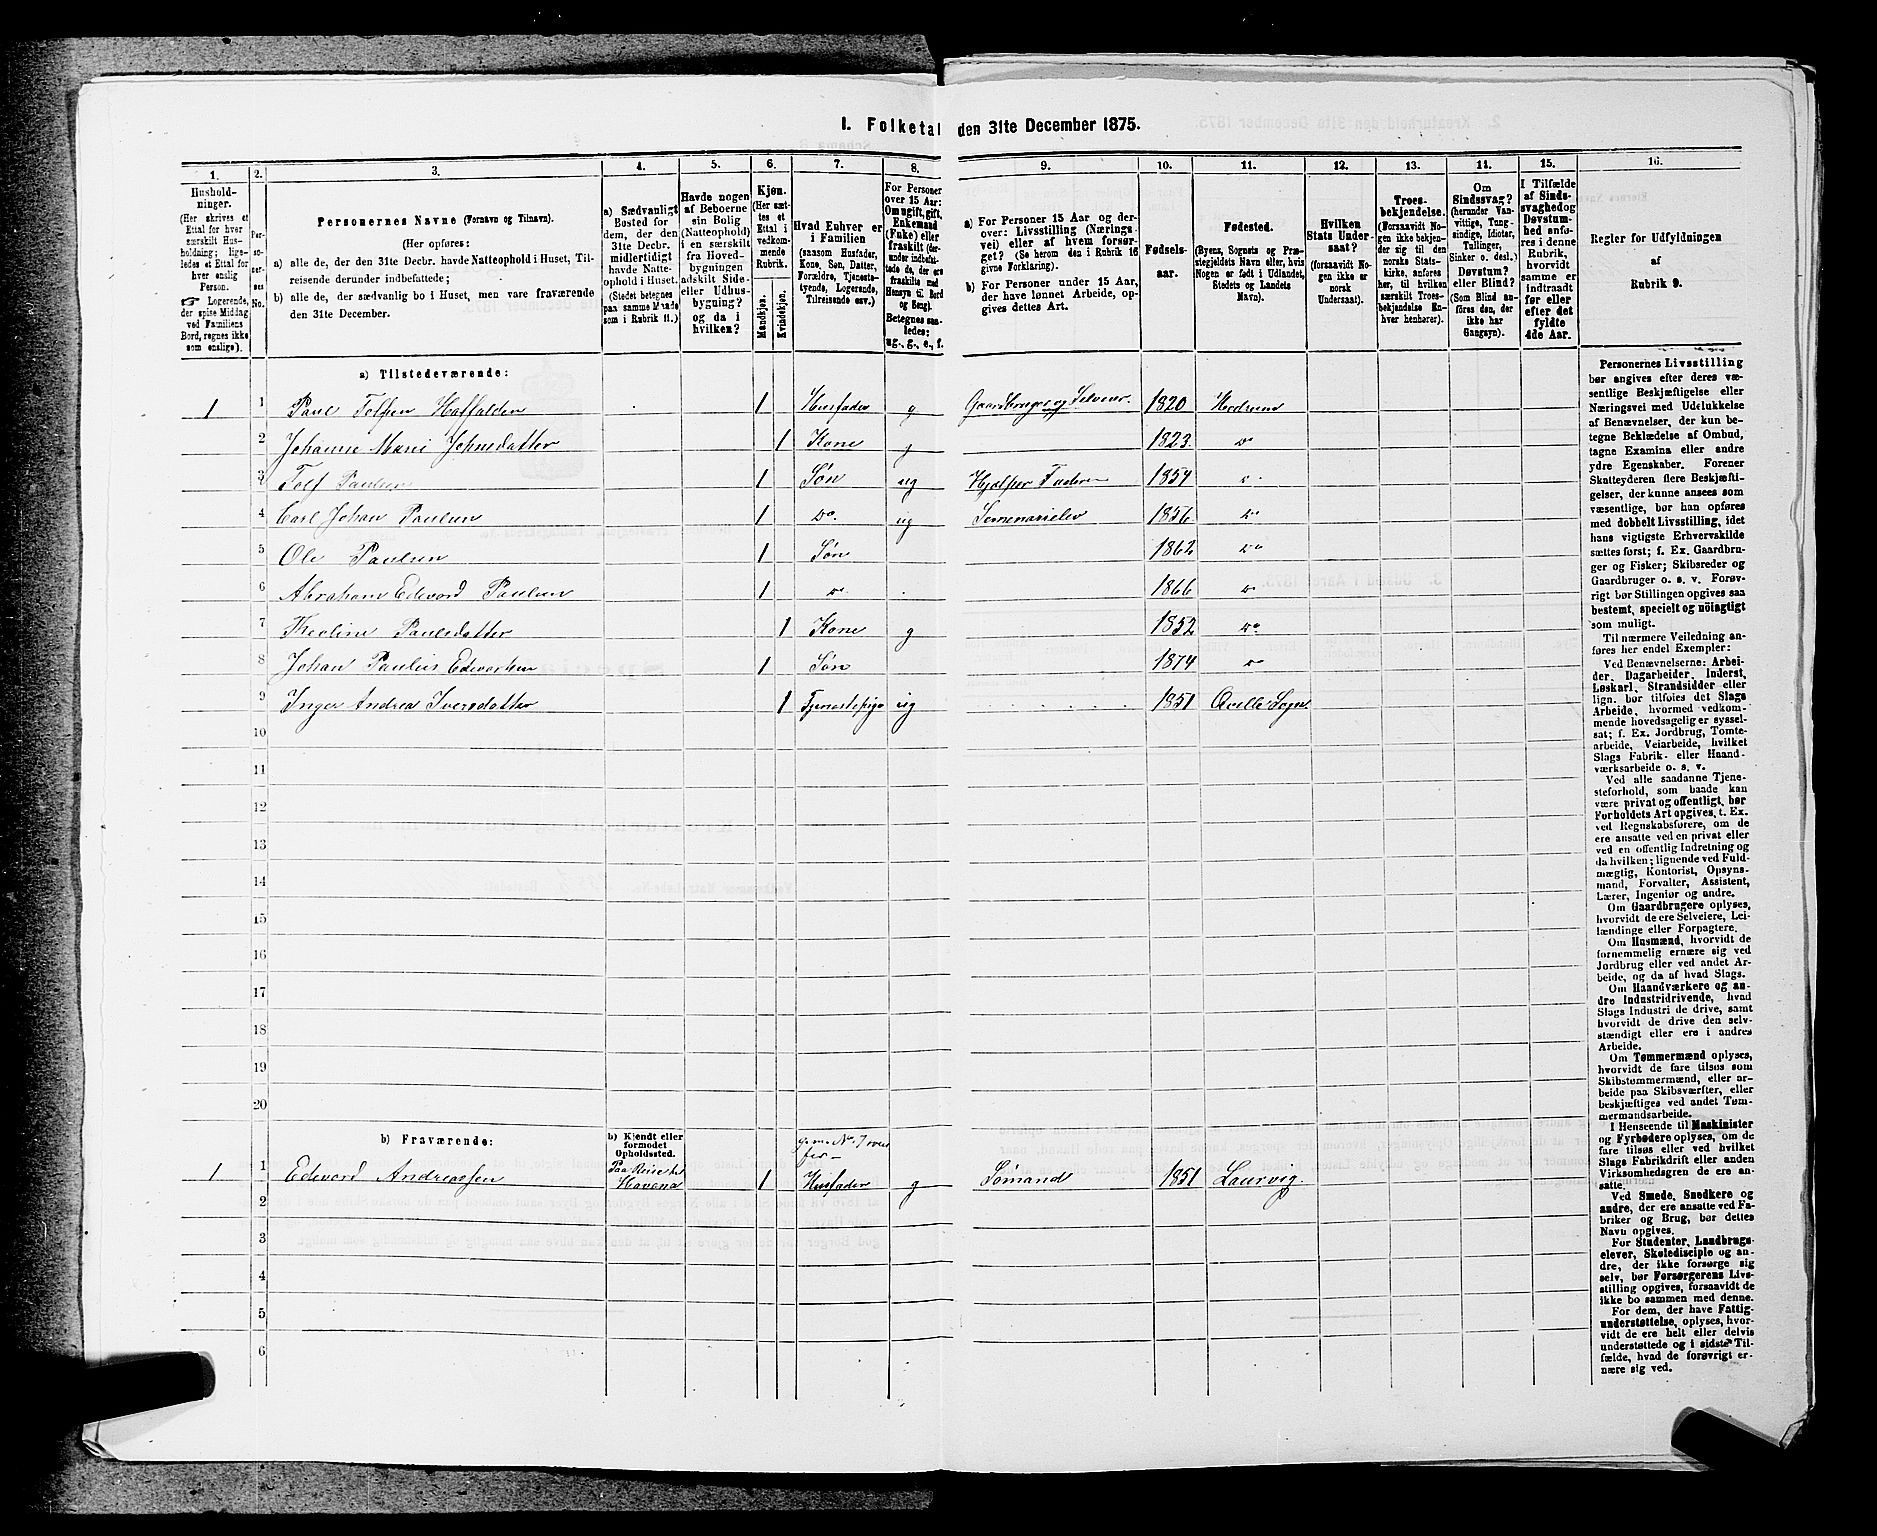 I. Folketal den 31te December 1875.
1. 2. 3. 4. 5. 6. 7. 8. 9. 10. 11. 12. 13. 14. 15. 16.
Hushold-
ninger.
(Her skrives et
Ettal for hver
særskilt Hus-
holdning; lige-
ledes et Ettal for
hver enslig
Person.
☞ Logerende,
der spise Middag
ved Familiens
Bord, regnes ikke
som enslige).
Per-
so-
ner-
nes
No.
Personernes Navne (Fornavn og Tilnavn).
(Her opføres:
a) alle de, der den 31te Decbr. havde Natteophold i Huset, Til-
reisende derunder indbefattede;
b) alle de, der sædvanlig bo i Huset, men vare fraværende
den 31te December.
a) Sædvanligt
Bosted for
dem, der den
31te Decbr.
midlertidigt
havde Natte-
ophold i Huset.
(Stedet betegnes
paa samme Maade
som i Rubrik 11.)
Havde nogen
af Beboerne
sin Bolig
(Natteophold)
i en særskilt
fra Hoved-
bygningen
adskilt Side-
eller Udhus-
bygning?
og da i
hvilken?
Kjøn.
(Her sæt-
tes et
Ettal i
vedkom-
mende
Rubrik.
Mandkjøn.
Kvindekjøn.
Hvad Enhver er
i Familien
(saasom Husfader,
Kone, Søn, Datter,
Forældre, Tjeneste-
tyende, Logerende,
Tilreisende osv.)
For Personer
over 15 Aar:
Om ugift, gift,
Enkemand
(Enke) eller
fraskilt (der-
under indbefat-
tede de, der ere
fraskilte med
Hensyn til Bord
og Seng).
Betegnes saa-
ledes:
ug., g., e., f.
a) For Personer 15 Aar og der-
over: Livsstilling (Nærings-
vei) eller af hvem forsør-
get? (Se herom den i Rubrik 16
givne Forklaring).
b) For Personer under 15 Aar,
der have lønnet Arbeide, op-
gives dettes Art.
Fødsels-
aar.
Fødested.
(Byens, Sognets og Præ-
stegjeldets Navn eller, hvis
Nogen er født i Udlandet,
Stedets og Landets
Navn).
Hvilken
Stats Under-
saat?
(forsaavidt No-
gen ikke er
norsk
Undersaat).
Troes-
bekjendelse.
(Forsaavidt No-
gen ikke bekjen-
der sig til den
norske Stats-
kirke, anføres
her, til hvilken
særskilt Troes-
bekjendelse En-
hver henhører).
Om
Sindssvag?
(herunder Van-
vittige, Tung-
sindige, Idioter,
Tullinger,
Sinker o. desl.)
Døvstum?
eller Blind?
(Som Blind an-
føres den, der
ikke har
Gangsyn).
I Tilfælde
af Sinds-
svaghed og
Døvstum-
hed anfø-
res i denne
Rubrik,
hvorvidt
samme er
indtraadt
før eller
efter det
fyldte
4de Aar.
Regler for Udfyldningen
af
Rubrik 9.
a) Tilstedeværende:
1 1 Paul Tolfsen Haffalden 1 Husfader g Gaardbruger og Selveier 1820 Hedrum
2 Johanne Marie Johnsdatter 1 Kone g 1823 do
3 Tolf Paulsen 1 Søn ug Hjælper Faderen 1854 do
4 Carl Johan Paulsen 1 do. ug Semenarielev 1856 do
5 Ole Paulsen 1 Søn 1862 do
6 Abraham Edevard Paulsen 1 do. 1866 do
7 Theoline Paulsdatter 1 Kone g 1852 do
8 Johan Paulus Edevartsen 1 Søn 1874 do
9 Inger Andrea Iversdatter 1 Tjenestepige ug 1851 Qvelle Sogn
10
11
12
13
14
15
16
17
18
19
20
b) Fraværende:
b) Kjendt eller
formodet
Opholdssted.
1 1 Edevard Andreassen Paa Reise til Havana 1 Husfader g Sømand 1851 Laurvig.
2
3
4
5
6
Personernes Livsstilling
bør angives efter deres væ-
sentlige Beskjæftigelse eller
Næringsvei med Udelukkelse
af Benævnelser, der kun be-
tegne Beklædelse af Ombud,
tagne Examina eller andre
ydre Egenskaber. Forener
Skatteyderen flere Beskjæfti-
gelser, der kunne ansees som
væsentlige, bør han opføres
med dobbelt Livsstilling, idet
hans vigtigste Erhvervskilde
sættes først; f. Ex. Gaardbru-
ger og Fisker; Skibsreder og
Gaardbruger o. s. v. Forøv-
rigt bør Stillingen opgives saa
bestemt, specielt og nöiagtigt
som muligt.
Til nærmere Veiledning an-
føres her endel Exempler:
Ved Benævnelserne: Arbei-
der, Dagarbeider, Inderst,
Løskarl, Strandsidder eller
lign. bør tilføies det Slags
Arbeide, hvormed vedkom-
mende hovedsagelig er syssel-
sat; f. Ex. Jordbrug, Tomte-
arbeide, Veiarbeide, hvilket
Slags Fabrik- eller Haand-
værksarbeide o. s. v.
Ved alle saadanne Tjene-
steforhold, som baade kan
være privat og offentligt, bør
Forholdets Art opgives, t. Ex.
ved Regnskabsførere, om de
ere ansatte ved en privat eller
ved en offentlig Indretning og
da hvilken; lignende ved Fuld-
mægtig, Kontorist, Opsyns-
mand, Forvalter, Assistent,
Lærer, Ingeniør og andre.
Om Gaardbrugere oplyses,
hvorvidt de ere Selveiere, Lei-
lændinge eller Forpagtere.
Om Husmænd, hvorvidt de
fornemmelig ernære sig ved
Jordbrug eller ved andet Ar-
beide, og da af hvad Slags.
Om Haandværkere og an-
dre Industridrivende, hvad
Slags Industri de drive, samt
hvorvidt de drive den selv-
stændigt eller ere i andres
Arbeide.
Om Tømmermænd oplyses,
hvorvidt de fare tilsøs som
Skibstømmermænd, eller ar-
beide paa Skibsværfter, eller
beskjæftiges ved andet Tøm-
mermandsarbeide.
I Henseende til Maskinister
og Fyrbødere oplyses, om de
fare tilsøs eller ved hvilket
Slags Fabrikdrift eller anden
Virksomhedsgren de ere an-
satte.
Ved Smede, Snedkere og
andre, der ere ansatte ved Fa-
briker og Brug, bør dettes
Navn opgives.
For Studenter, Landbrugs-
elever, Skoledisciple og an-
dre, der ikke forsørge sig
selv, bør Forsørgerens Livs-
stilling opgives, forsaavidt de
ikke bo sammen med denne.
For dem, der have Fattig-
understøttelse, oplyses, hvor-
vidt de ere helt eller delvis
understøttede og i sidste Til-
fælde, hvad de forøvrigt er-
nære sig ved.